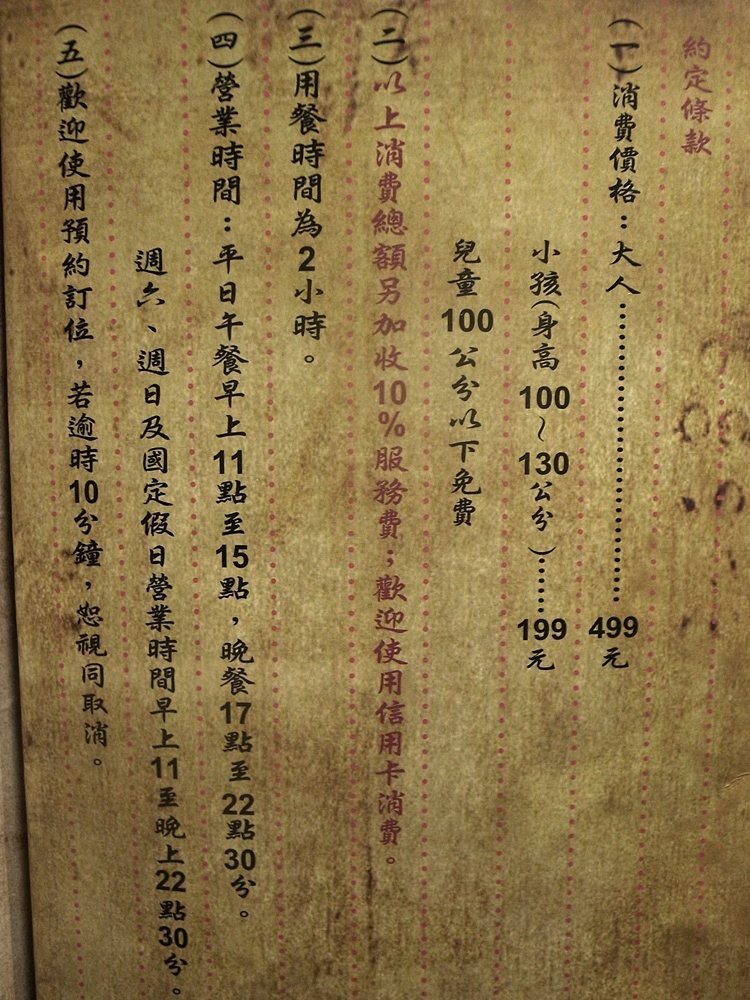 約定條款
(一)消費價格：大人……………………………499元
小孩(身高100～130公分)……199元
兒童100公分以下免費
(二)以上消費總額另加收10%服務費；歡迎使用信用卡消費。
(三)用餐時間為2小時。
(四)營業時間：平日午餐早上11點至15點，晚餐17點至22點30分。
週六、週日及國定假日營業時間早上11至晚上22點30分。
(五)歡迎使用預約訂位，若逾時10分鐘，恕視同取消。